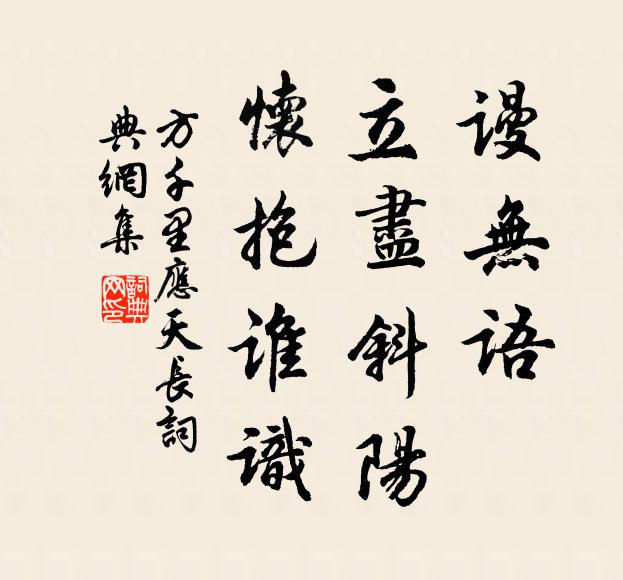 謾無語
立盡斜陽
懷抱誰識
方千里應天長詞
典網集
詞典網印